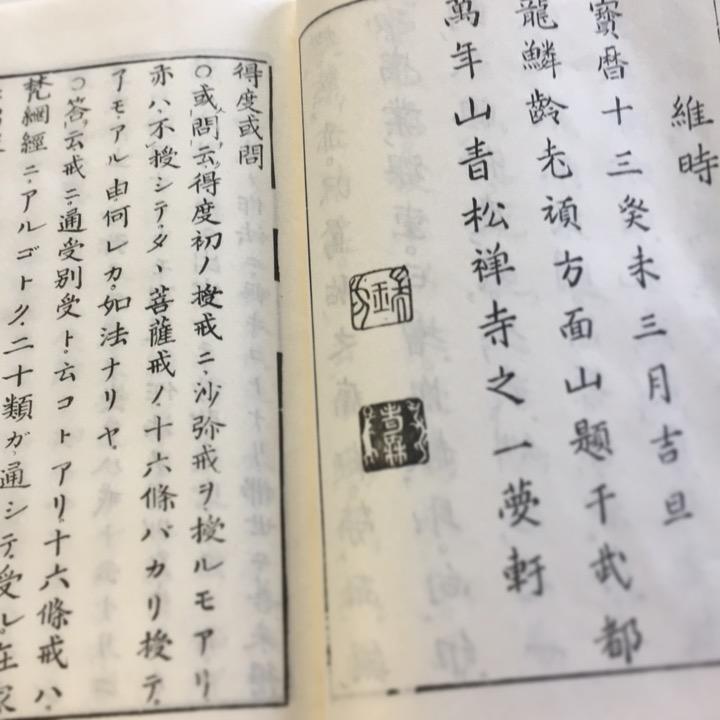 維時
寶暦十三癸未三月吉旦
龍鱗齡老頑方面山題于武都
萬年山青松禅寺之一夢軒
得度或問
○或問云得度初ノ授戒ニ沙弥戒ヲ授ルモアリ
亦ハ不授シテタヽ菩薩戒ノ十六條バカリ授テ
アモアル由何レカ。如法ナリヤ
○答云戒ニ通受別受ト云コトアリ十六條戒ハ
梵網經ニアルゴトク二十類ガ通シテ受ル。在家